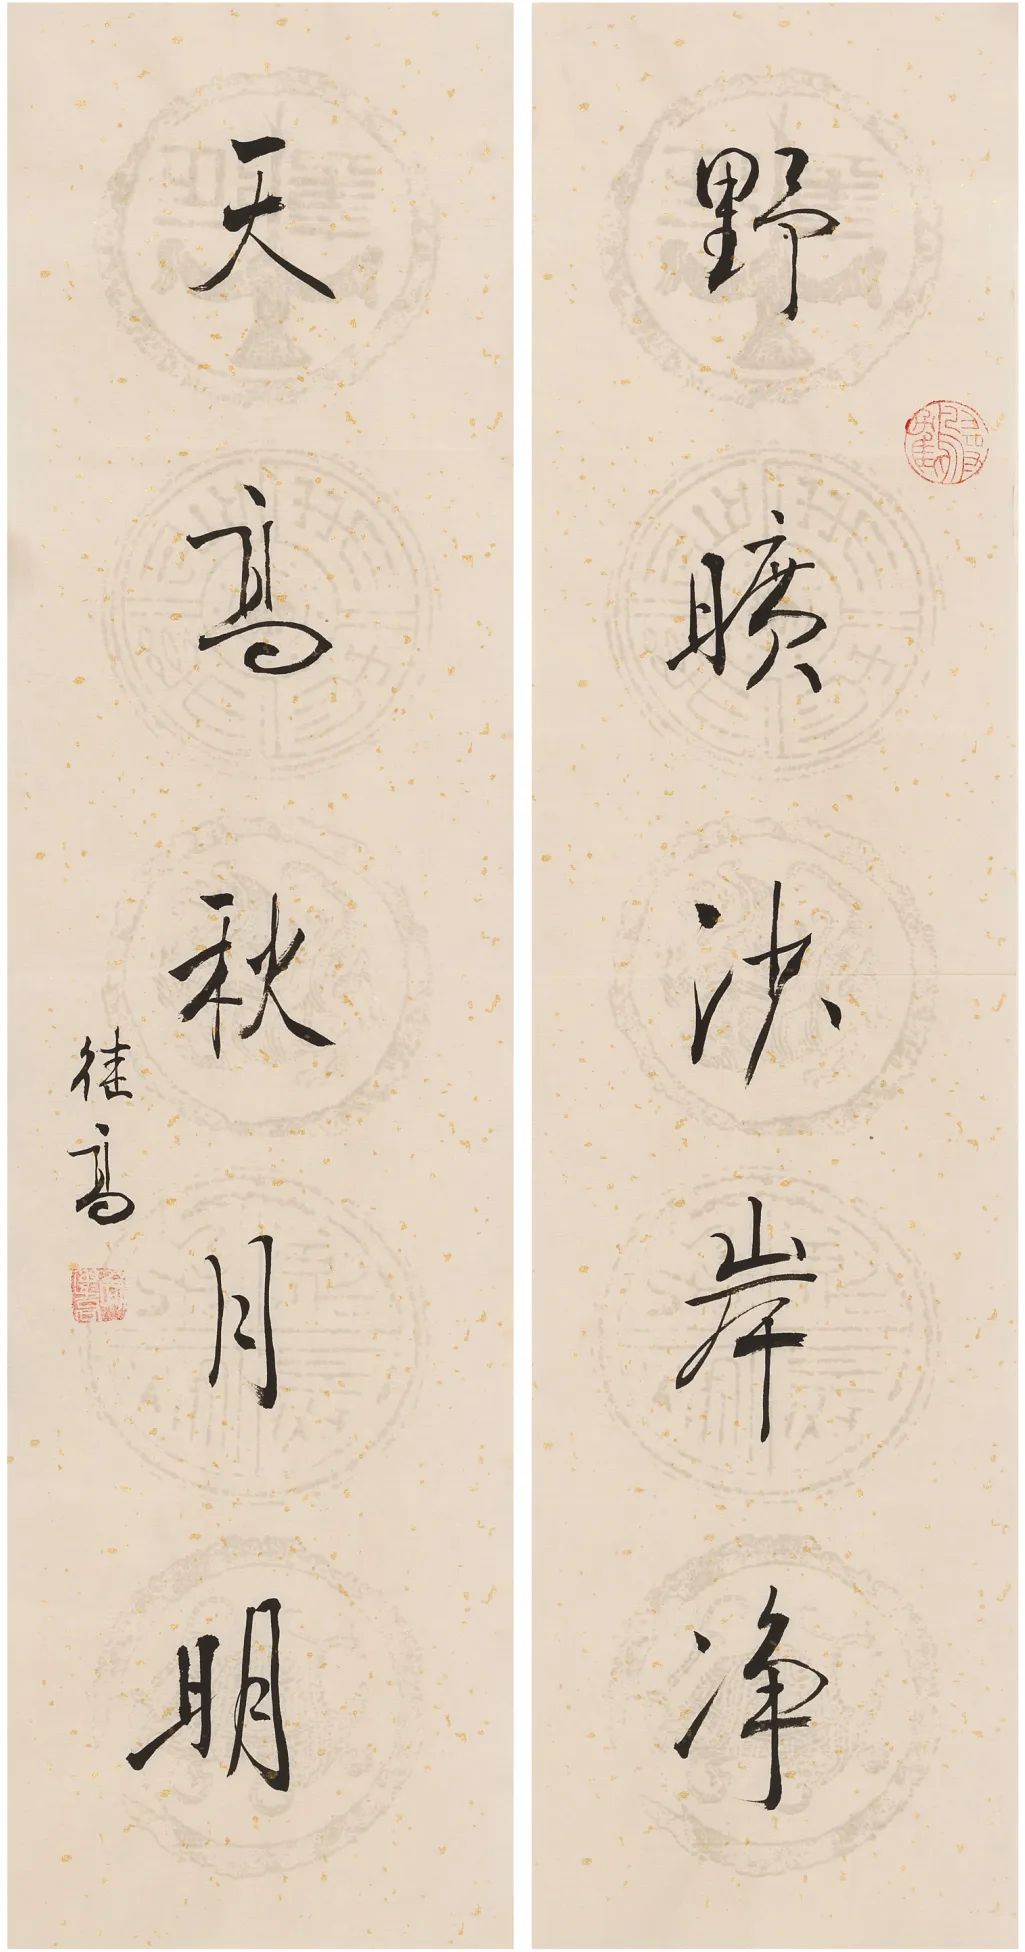 野曠沙岸净
天高秋月明
高